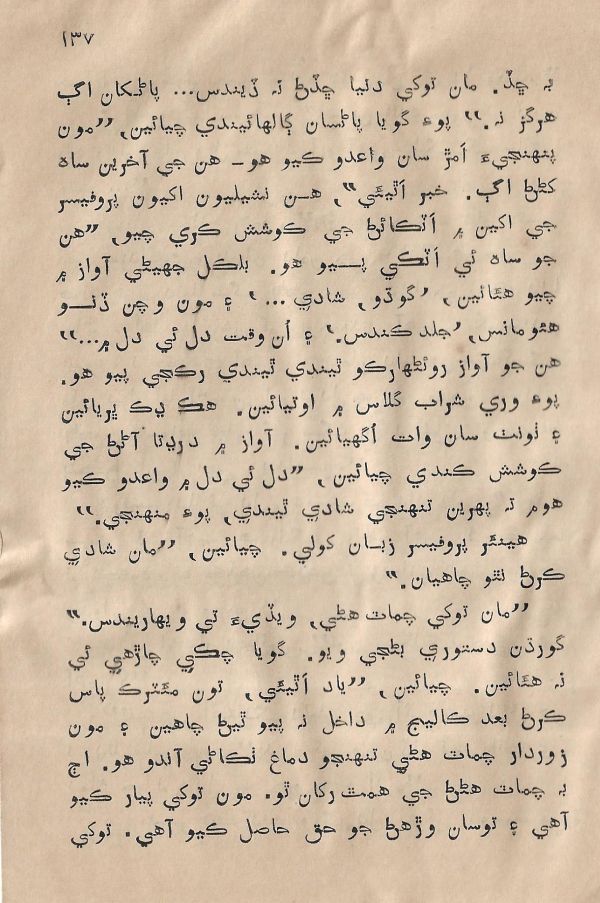 ١٣٧
بہ ڇڏ. مان توکي دنيا ڇڏڻ نہ ڏيندس... پاڻکان اڳ
هرگز نہ.“ پوءِ گويا پاڻسان ڳالهائيندي چيائين, ”مون
پنهنجيءَ اَمڙ سان واعدو ڪيو هو- هن جي آخرين ساه
کڻڻ اڳ. خبر اَٿيئي“, هن نشيليون اکيون پروفيسر
جي اکين ۾ اَٽڪائڻ جي ڪوشش ڪري چيو, ”هن
جو ساه ئي اَٽڪي پيو هو. بلڪل جهيڻي آواز ۾
چيو هئائين, ’گوڌو, شادي...‘ ۽ مون وچن ڏنو
هئومانس, ’جلد ڪندس.‘ ۽ اُن وقت دل ئي دل ۾...“
هن جو آواز روئڻهارڪو ٿيندي ٿيندي رڪجي پيو هو.
پوءِ وري شراب گلاس ۾ اوتيائين. هڪ ڍڪ ڀريائين
۽ ٺونٺ سان وات اُگهيائين. آواز ۾ درڍتا آڻڻ جي
ڪوشش ڪندي چيائين, ”دل ئي دل ۾ واعدو ڪيو
هوم تہ پهرين تنهنجي شادي ٿيندي, پوءِ منهنجي.“
هينئر پروفيسر زبان کولي. چيائين, ”مان شادي
ڪرڻ نٿو چاهيان.“
”مان توکي چماٽ هڻي, ويڏيءَ تي ويهاريندس.“
گورڌن دستوري بڻجي ويو. گويا چڪي چاڙهي ئي
نہ هئائين. چيائين, ”ياد اَٿيئي, تون مئٽرڪ پاس
ڪرڻ بعد ڪاليج ۾ داخل نہ پيو ٿيڻ چاهين ۽ مون
زوردار چماٽ هڻي تنهنجو دماغ ٺڪاڻي آندو هو. اڄ
بہ چماٽ هڻڻ جي همٿ رکان ٿو. مون توکي پيار ڪيو
آهي ۽ توسان وڙهڻ جو حق حاصل ڪيو آهي. توکي